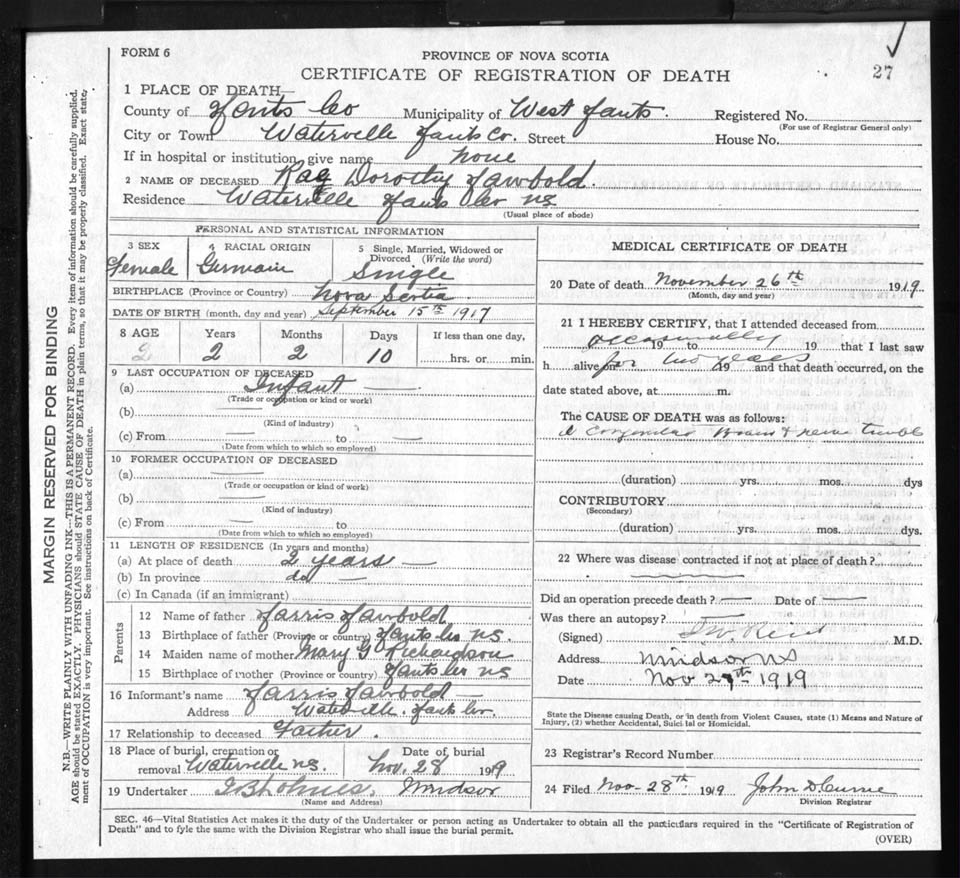 FORM 6
PROVINCE OF NOVA SCOTIA
27
CERTIFICATE OF REGISTRATION OF DEATH
1 PLACE OF DEATH—
County of Hants Co Municipality of West Hants. Registered No.
(For use of Registrar General only)
City or Town Waterville Hants Co. Street House No.
If in hospital or institution, give name none
2 NAME OF DECEASED Rae Dorothy Hawbold.
Residence Waterville Hants Co NS
(Usual place of abode)
PERSONAL AND STATISTICAL INFORMATION
3 SEX Female
4 RACIAL ORIGIN Germain
5 Single, Married, Widowed or Divorced (Write the word) Single
BIRTHPLACE (Province or Country) Nova Scotia
DATE OF BIRTH (month, day and year) September 15th 1917
8 AGE Years Months Days If less than one day,
2 2 2 10 hrs. or min.
9 LAST OCCUPATION OF DECEASED
(a) Infant
(Trade or occupation or kind or work)
(b)
(Kind of industry)
(c) From to
(Date from which to which so employed)
10 FORMER OCCUPATION OF DECEASED
(a)
(Trade or occupation or kind of work)
(b)
(Kind of industry)
(c) From to
(Date from which to which so employed)
11 LENGTH OF RESIDENCE (In years and months)
(a) At place of death 2 years —
(b) In province do —
(c) In Canada (if an immigrant)
Parents
12 Name of father Harris Hawbold
13 Birthplace of father (Province or country) Hants Co NS.
14 Maiden name of mother Mary G Richardson
15 Birthplace of mother (Province or country) Hants Co NS
16 Informant's name Harris Hawbold —
Address Waterville. Hants Co.
17 Relationship to deceased Father.
18 Place of burial, cremation or removal Waterville NS.
Date of burial Nov. 28 1919
19 Undertaker Windsor
(Name and Address)
MEDICAL CERTIFICATE OF DEATH
20 Date of death November 26th 1919
(Month, day and year)
21 I HEREBY CERTIFY, that I attended deceased from
occasionally 19 to 19 that I last saw
h alive on for two years 19 and that death occurred, on the
date stated above, at m.
The CAUSE OF DEATH was as follows:
Congenital Brain & nerve trouble
(duration) yrs. mos. dys
CONTRIBUTORY
(Secondary)
(duration) yrs. mos. dys.
22 Where was disease contracted if not at place of death?
Did an operation precede death? — Date of —
Was there an autopsy?
(Signed) J W. Reid M.D.
Address Windsor NS
Date Nov 27th 1919
State the Disease causing Death, or in death from Violent Causes, state (1) Means and Nature of
Injury, (2) whether Accidental, Suicidal or Homicidal.
23 Registrar's Record Number
24 Filed Nov-28th 1919 John D. Currie
Division Registrar
SEC. 46—Vital Statistics Act makes it the duty of the Undertaker or person acting as Undertaker to obtain all the particulars required in the "Certificate of Registration of
Death" and to fyle the same with the Division Registrar who shall issue the burial permit.
(OVER)
MARGIN RESERVED FOR BINDING
N.B.—WRITE PLAINLY WITH UNFADING INK—THIS IS A PERMANENT RECORD. Every item of information should be carefully supplied.
AGE should be stated EXACTLY. PHYSICIANS should STATE CAUSE OF DEATH in plain terms, so that it may be properly classified. Exact state-
ment of OCCUPATION is very important. See instructions on back of Certificate.